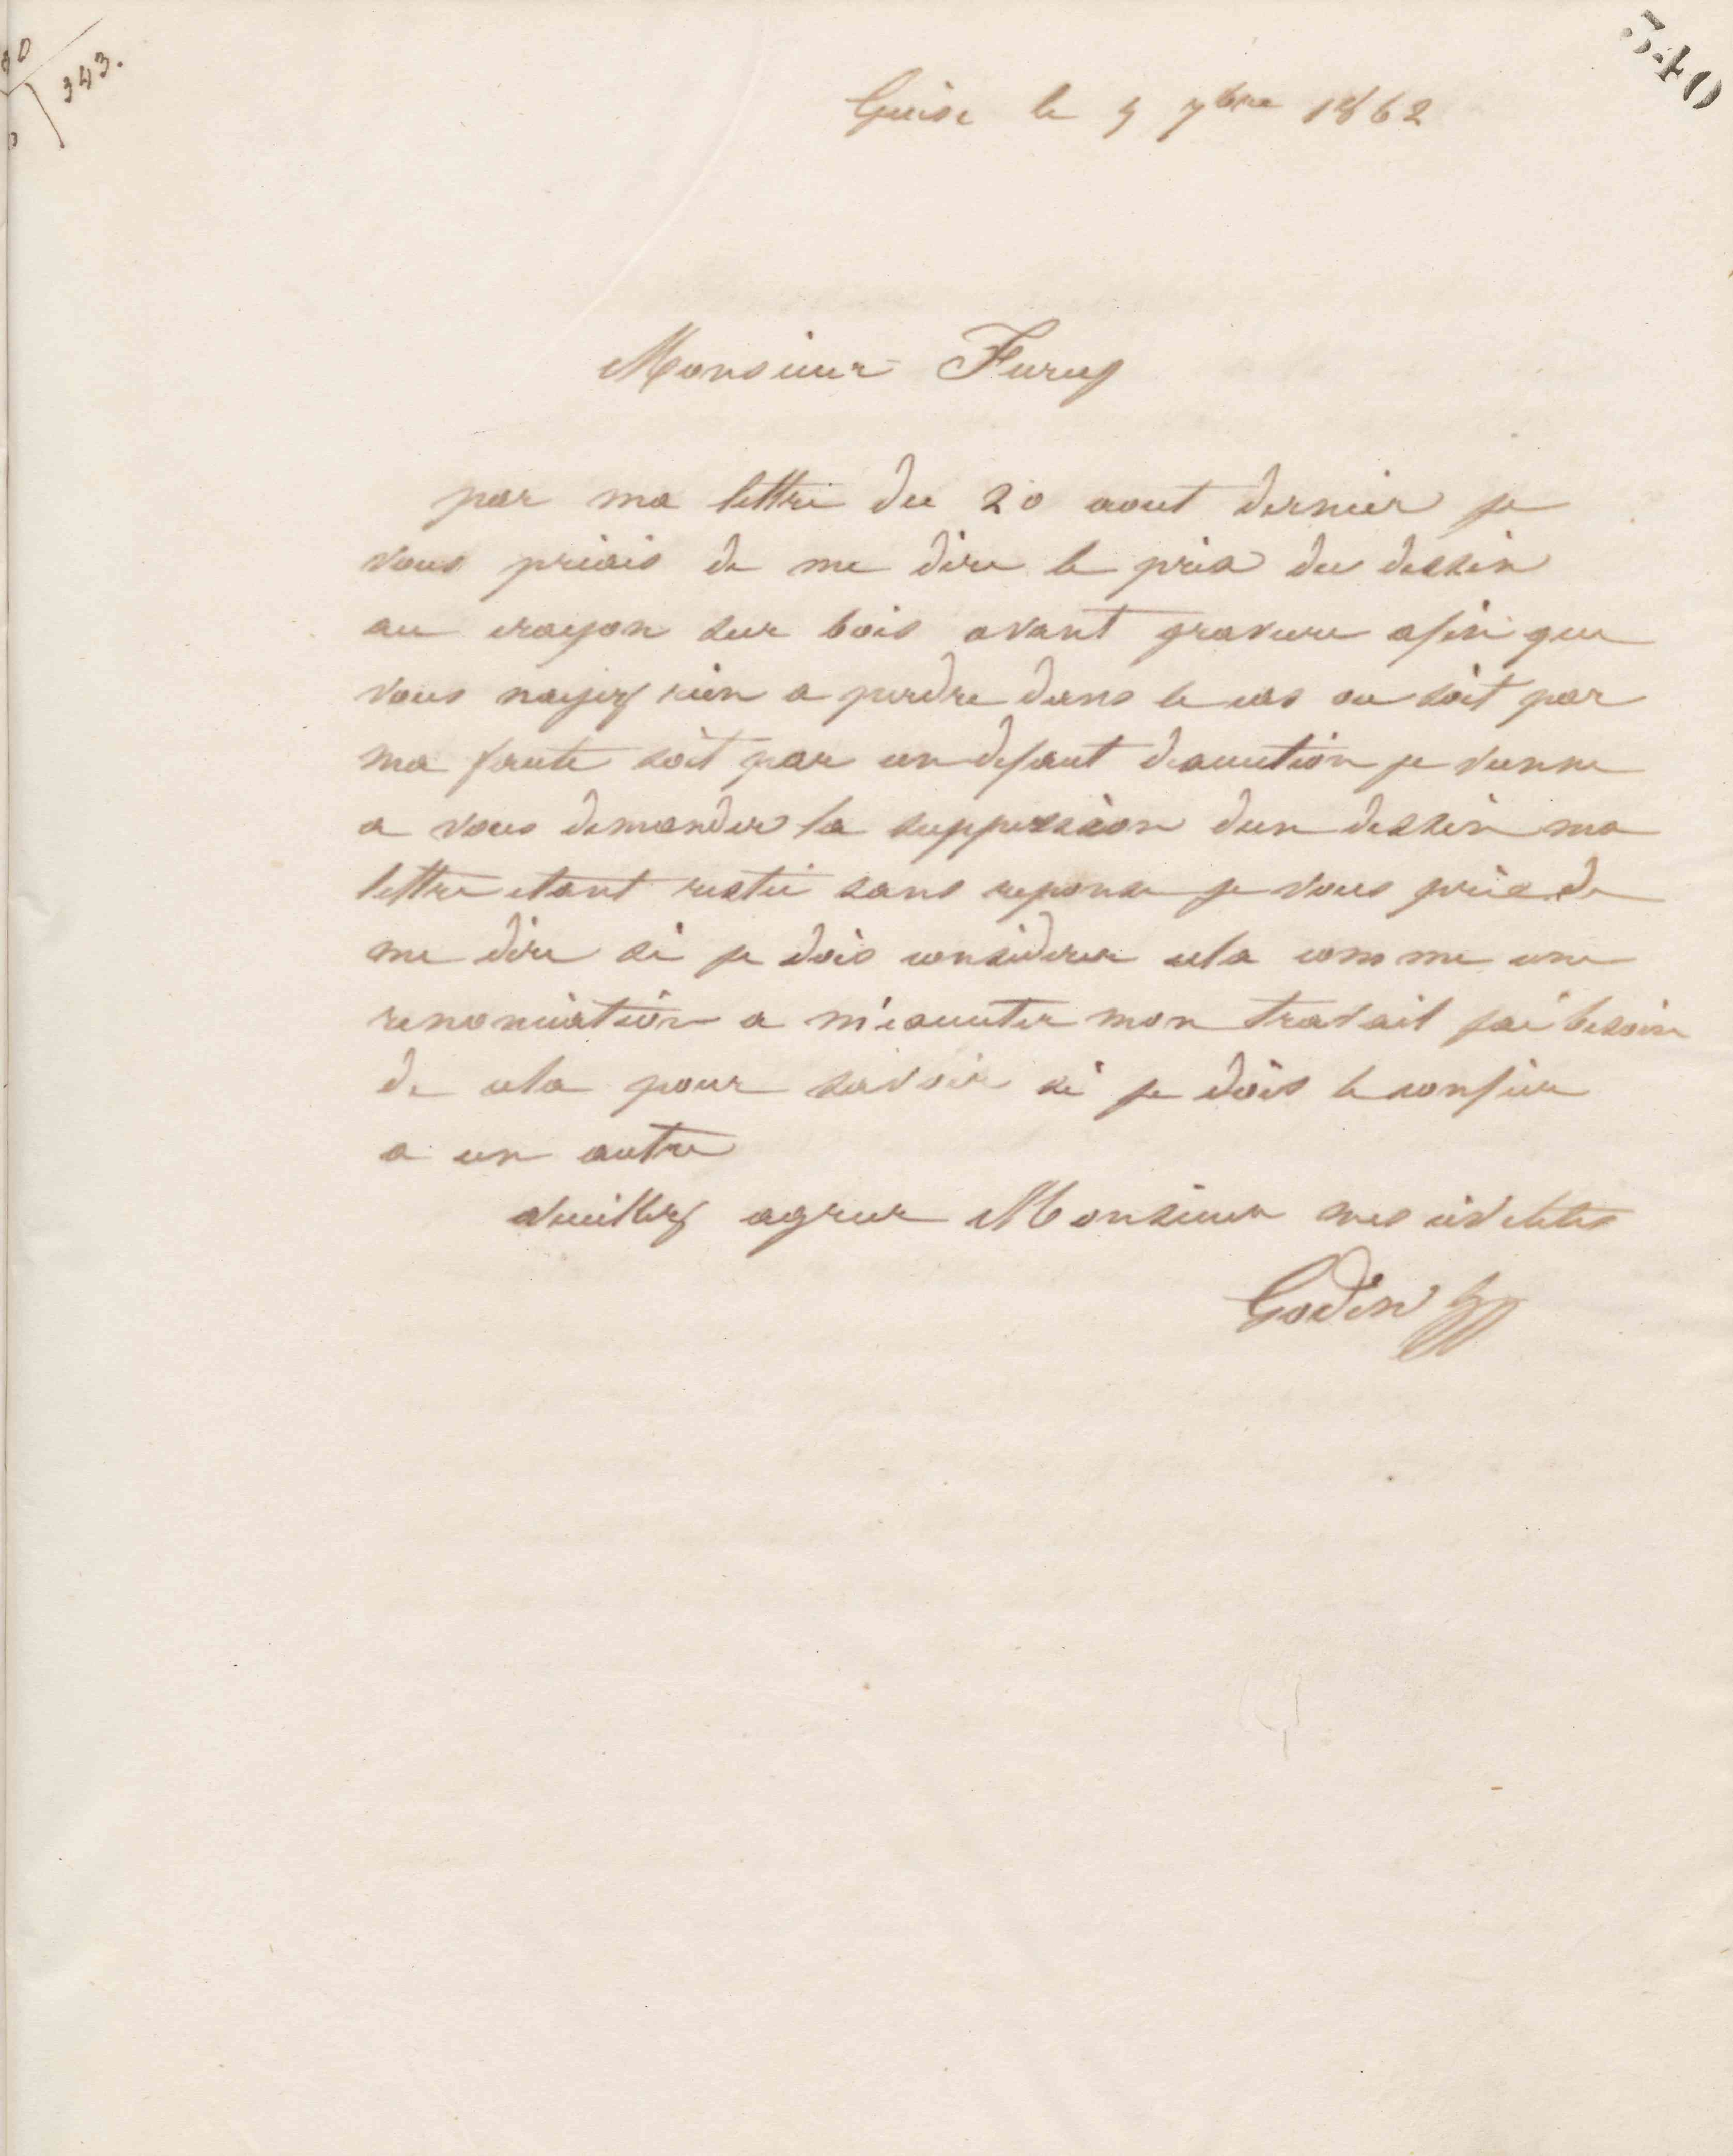 343.
340
Guise le 5 7bre 1862
Monsieur Furey
par ma lettre du 20 aout dernier je
vous priais de me dire le prix du dessin
au crayon sur bois avant gravure afin que
vous nayez rien a perdre dans le cas ou soit par
ma faute soit par un defaut dexecution je vienne
a vous demander la suppression dun dessin ma
lettre etant restée sans reponse je vous prie de
me dire si je dois considerer cela comme une
renonciation a m'executer mon travail jai besoin
de cela pour savoir si je dois le confier
a un autre
Veuillez agreer Monsieur mes civilites
Godin